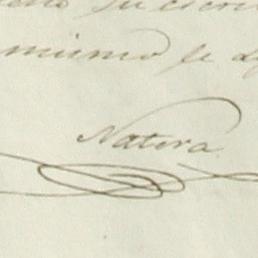 su escri
mismo se
Natera